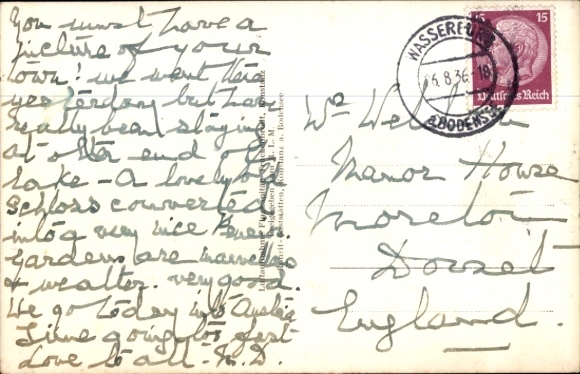 You must have a
picture of your
town! We went there
yesterday but have
really been staying
at other end of
Lake - A lovely old
Schloss converted
into a very nice
Gardens are marvellous
& weather very good.
We go today into Austria
Time going too fast
Love to all - M.D.
WASSERBURG
8.36-18
a. BODENSEE
15 15
Deutsches Reich
Manor House
Moreton
Dorset
England.